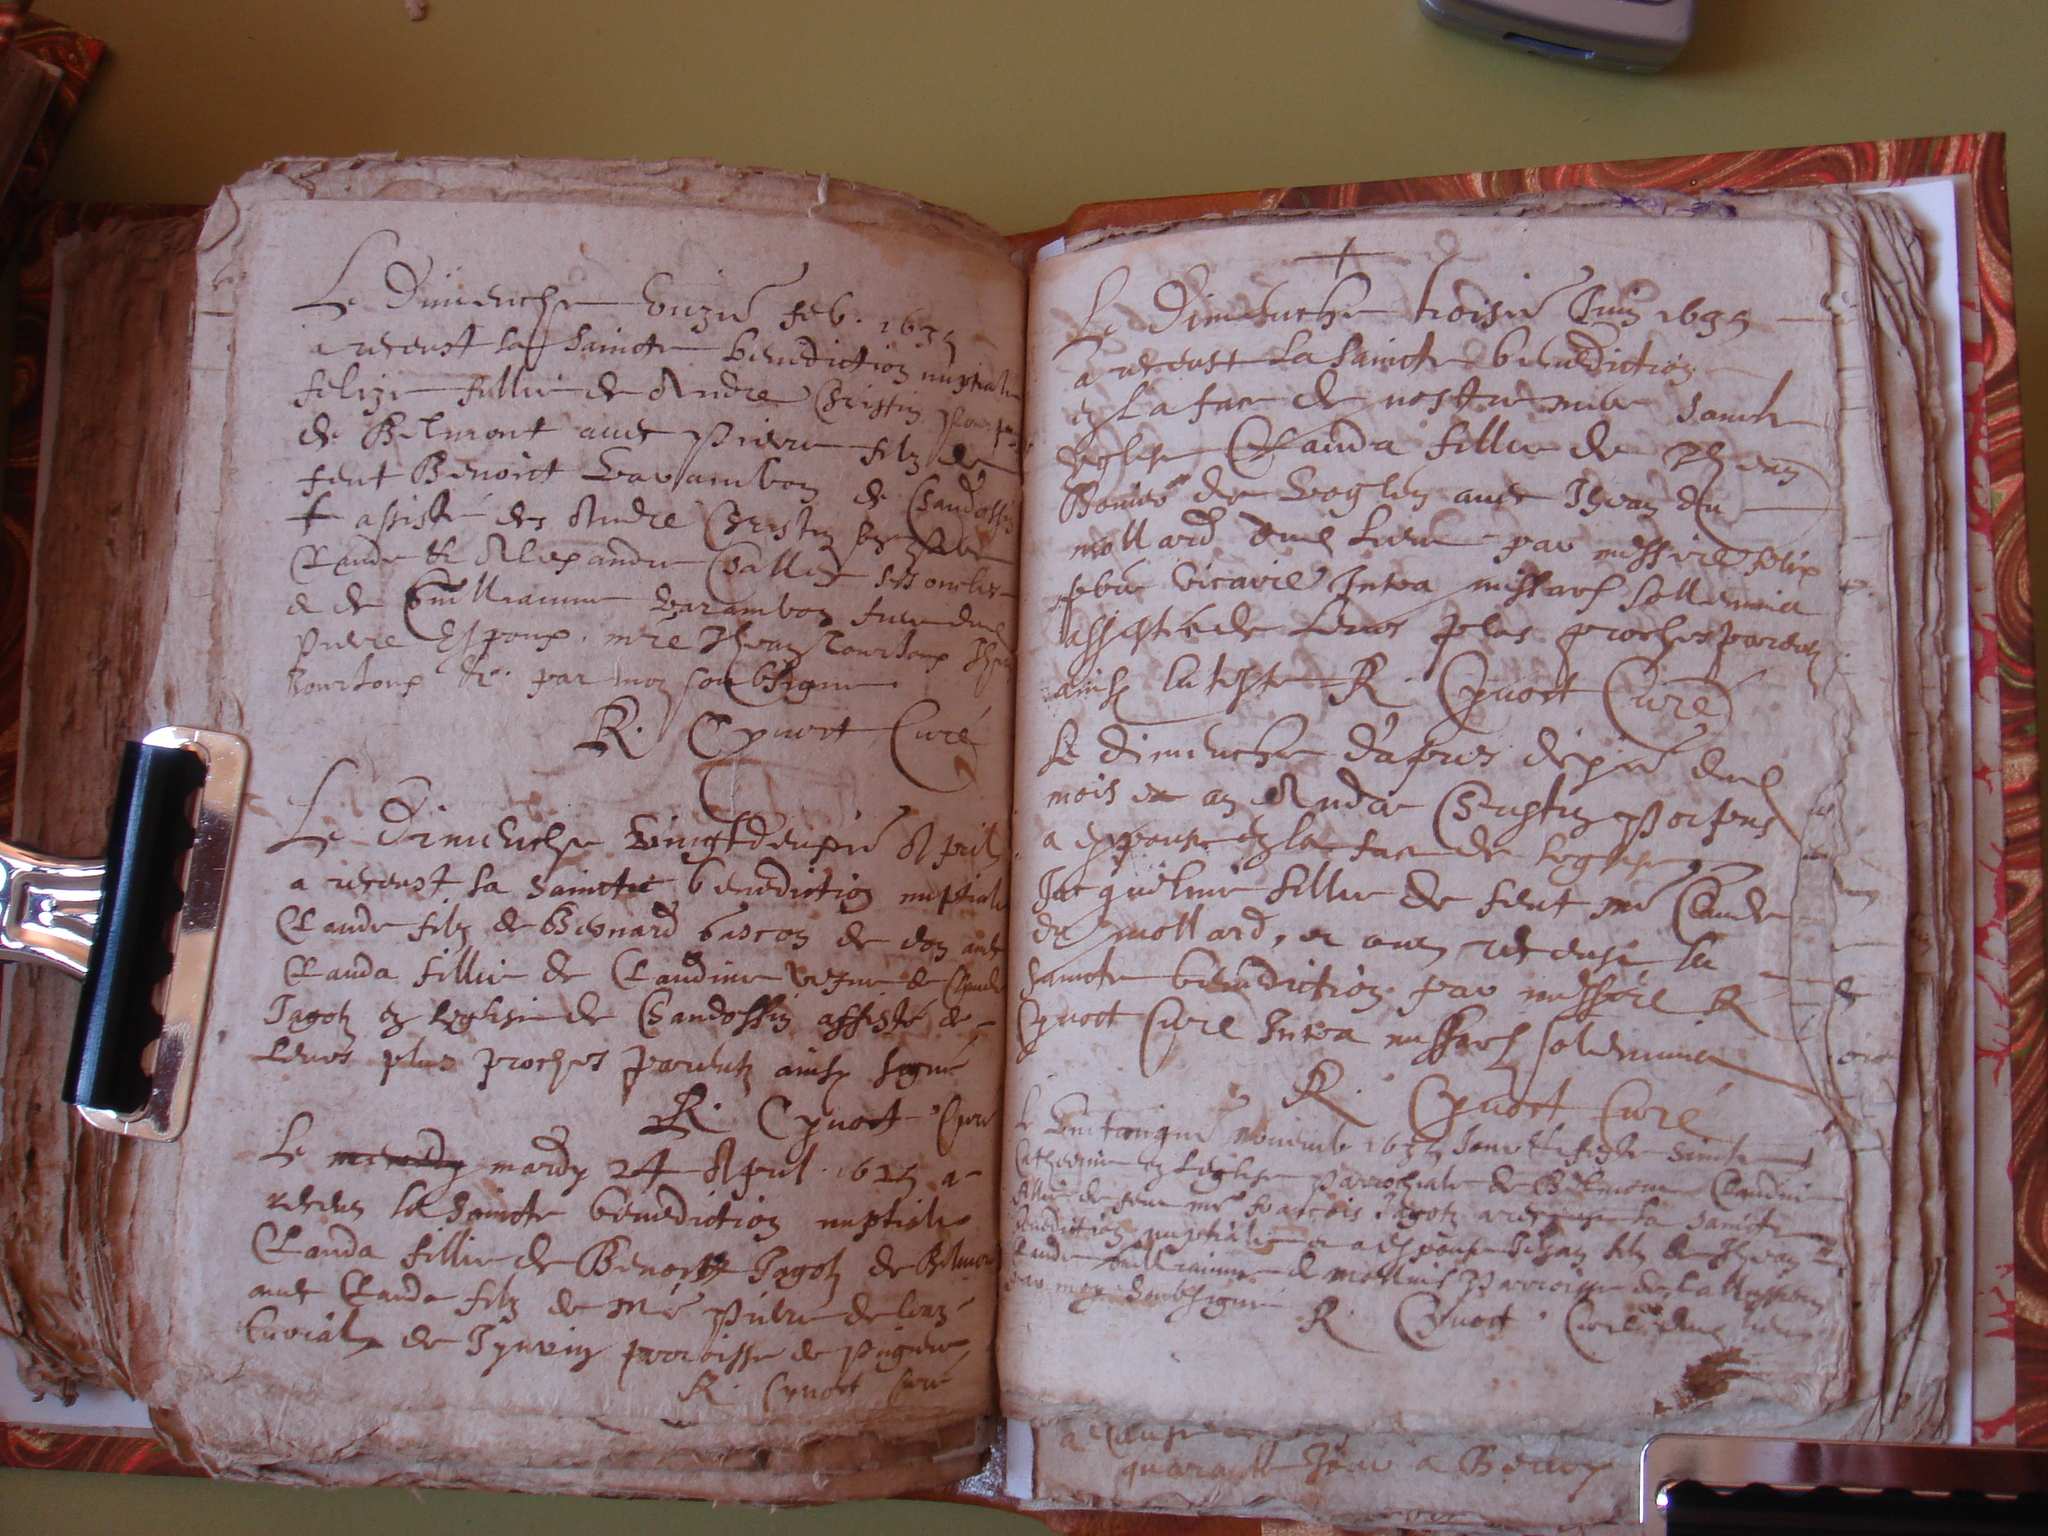 Le Dimenche unzie feb. 1635
a receust la saincte benediction nuptiale
felize fillie de Andre Christin
de Belmont avec Pierre filz de
feut Benoict Varambon de Chandossin
assisté de Andre Christin
Claude & Alexandre Gallet ses oncles
& de Guilliaume Varambon frere dud
Pierre Espoux. mre Jhean Tourtoux
Tourtoux &c. par moy soubsigne
R. Cynoct Curé
Le Dimenche vingtdeuxie Apvril
a receust la saincte benediction nuptiale
Claude filz de Bernard bascon de don avec
Clauda fillie de Claudine vefue de Claude
Jagotz en leglise de Chandossin assisté de
leurs plus proches parentz ainsy signé
R. Cynoct Curé
Le mardy 24 Apvril 1635 a
receu la saincte benediction nuptiale
Clauda fillie de Benoict Jagotz de Belmont
avec Claude filz de Me Pierre de
de parroisse de Pugieu
R. Cynoct Curé
Le Dimenche troisie Juin 1635
a receust la saincte benediction
en la face de nostre mere saincte
eglise Clauda fillie de
de Voglen avec Jhean du
mollard dud lieu par messire felix
vicaire Intra missarum sollemnia
assisté de leurs plus proches parentz
ainsy latteste R. Cynoct Curé
Le dimenche d'apres dixie dud
mois & an Andre Christin
a espouse en la face de leglise
Jacqueline fillie de feut me Claude
du mollard, & ont receust la
saincte benediction par messire R
Cynoct Curé Intra missarum solemnia
R. Cynoct Curé
Le vintcinquie novembre 1635 Jour & feste saincte
Catherine en leglise parrochiale de Belmont Claudine
fillie de feu me francois Jagotz a receust la saincte
benediction nuptiale & a espouse Jehan filz de Jhean
Claude Guilliaume de parroisse de
par moy soubsigné
R. Cynoct Curé dud lieu
a cause
quarante Jour a